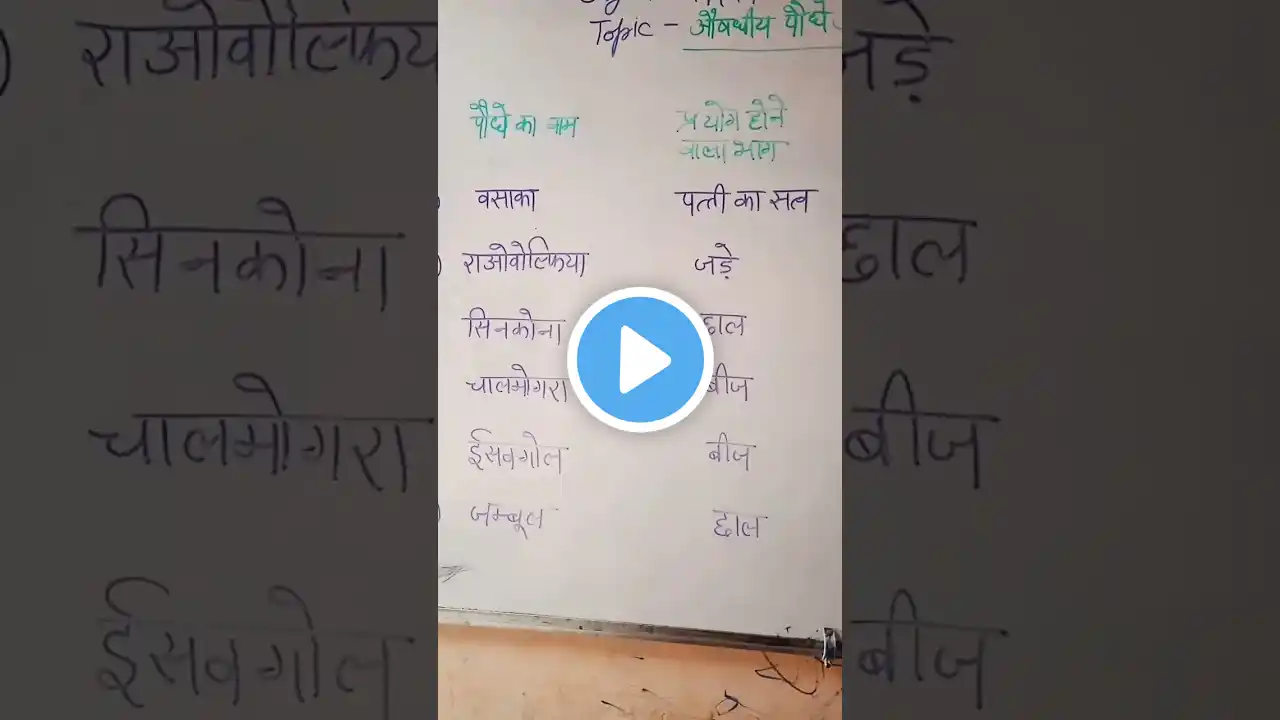 Topic - औषधीय पौधे
पौधे का नाम प्रयोग होने
वाला भाग
वसाका पत्ती का सत्व
राओवोल्फिया जड़े
सिनकोना छाल
चालमोगरा बीज
ईसवगोल बीज
जम्बूल छाल